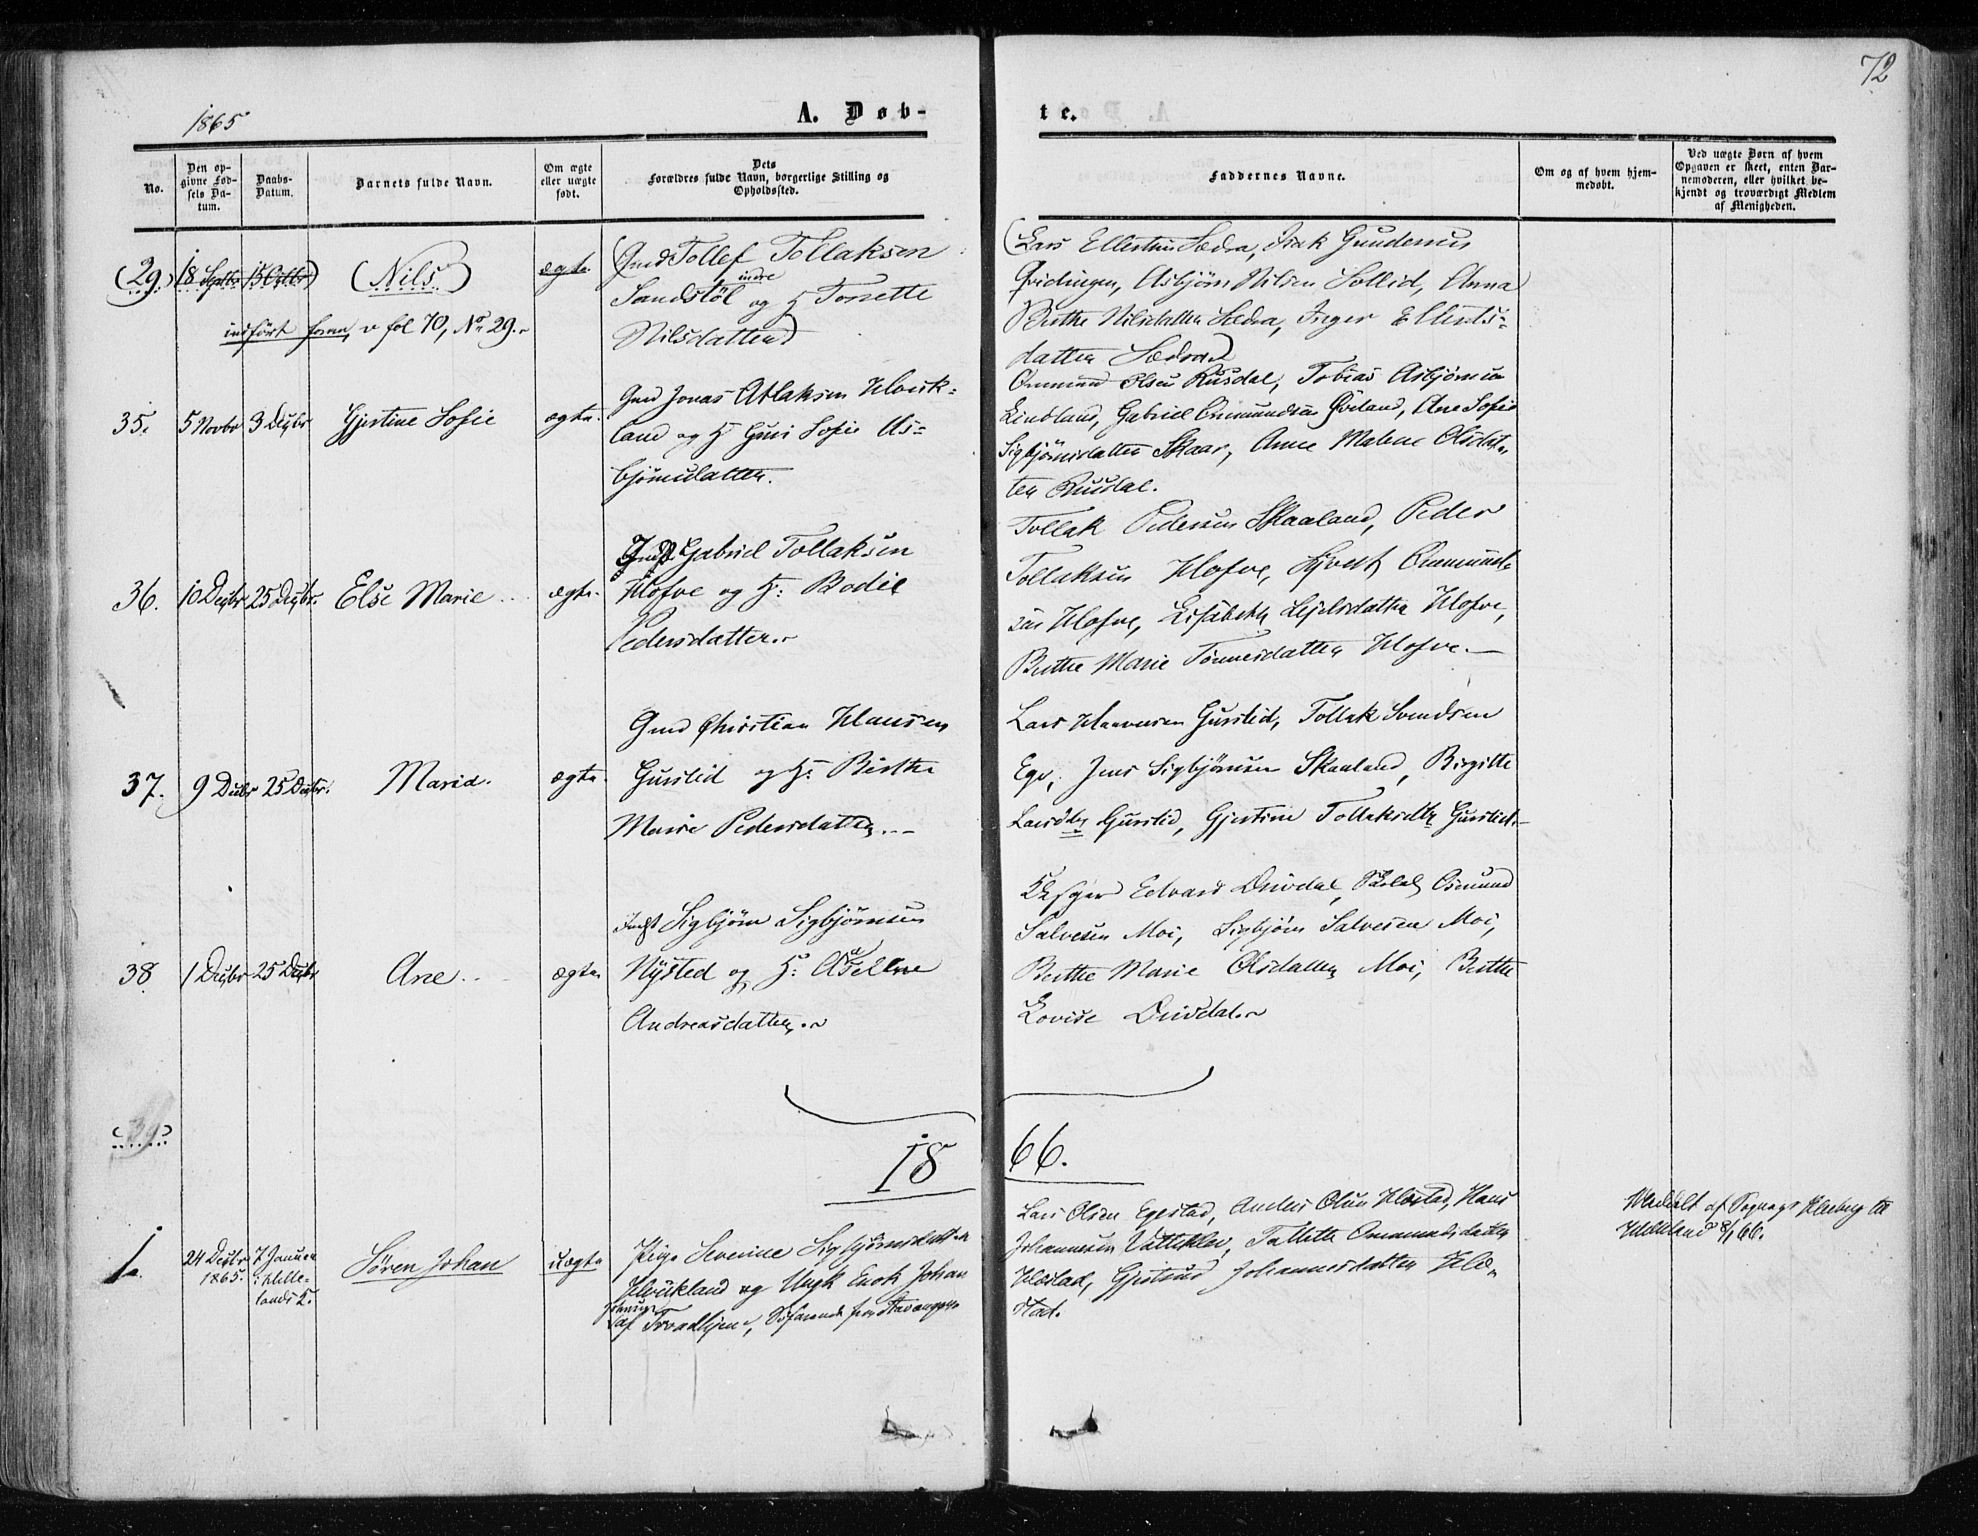 72
1865
A. Døb-
te.
No.
Den opgivne Fødsels Datum.
Daabs-Datum.
Barnets fulde Navn.
Om ægte eller uægte født.
Dets Forældres fulde Navn, borgerlige Stilling og Opholdssted.
Faddernes Navne.
Om og af hvem hjemmedøbt.
Ved uægte Børn af hvem Opgaven er skeet, enten Barnemoderen, eller hvilket bekjendt og troværdigt Medlem af Menigheden.
(29.) 18 Septbr 15 Octbr (Nils) ægte
(Gmd Tollef Tollaksen
indre
Sandstöl og H Torrette
Nilsdatter)
indført foran, v fol 70, No 29.
(Lars Ellertsen Lædra, Isak Gundersen
Qvidingen, Asbjørn Nilsen Sollid, Anna
Berthe Nilsdatter Lædra, Inger Ellerts-
datter Lædra)
35. 5 Novbr 3 Decbr Gjertine Sofie ægte.
Gmd Jonas Atlaksen
land og H Guri Sofie As-
bjørnsdatter.
Ommund Olsen Rusdal, Tobias Asbjørnsen
Lindland, Gabriel Ommundsen Øveland, Ane Sofie
Sigbjørnsdatter Skaar, Anne Malene Olsdat-
ter Rusdal.
36. 10 Decbr 25 Decbr. Else Marie ægte.
Gabriel Tollaksen
Hofve og H: Bodil
Pedersdatter.
Tollak Pedersen Skaaland, Peder
Tollaksen Hofve, Ommund-
sen Hofve, Lisabeth Hofve,
Berthe Marie Tønnesdatter Hofve.
37. 9 Decbr 25 Decbr. Maria. ægte.
Gmd Christian Hansen
Gurslid og H: Berthe
Marie Pedersdatter.
Lars Gurslid, Tollak Svendsen
Ege, Jens Sigbjørnsen Skaaland, Birgitte
Larsdtr Gurslid, Gjertine Tollaksdtr Gurslid.
38. 1 Decbr 25 Decbr Ane ægte
Indst Sigbjørn Sigbjørnsen
Nysted og H:
Andreasdatter.
Edvard Drivdal, Osmund
Salvesen Moi, Sigbjørn Salvesen Moi,
Berthe Marie Olsdatter Moi, Berthe
Lovise Drivdal.
(39)
18
66.
1. 24 Decbr 1865. 7 Januar i Hellelands K. Søren Johan uægte
Pige Severine Sigbjørnsdatter
og Ungk Enok Johan
af Trondhjem, Søfarende fra Stavanger
Lars Olsen Egestad, Anders Olsen Hæstad, Hans
Johannesen Vatteklev, Tallette Ommundsdatter
Hæstad, Gjertrud Johannesdatter Hæ-
stad.
Meddelt af Sogneprs til
Helleland 8/1 66.